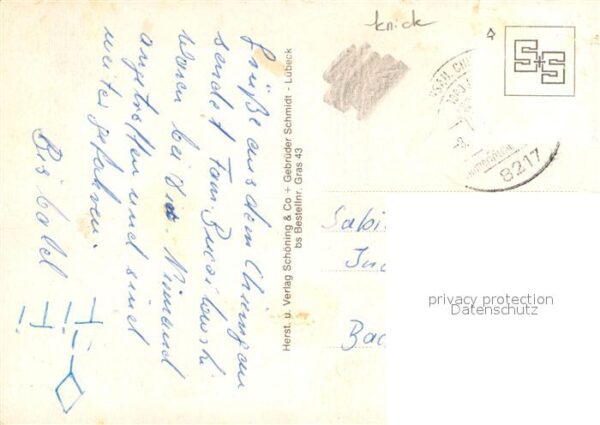 Grüße aus dem Chiemgau
sendet Fam.
Waren bei Dir. Niemand
angetroffen und sind
weitergefahren.
Bis bald
Herst. u. Verlag Schöning & Co + Gebrüder Schmidt - Lübeck
bs Bestellnr. Gras 43
knick
8217
Sabi
Bac
privacy protection
Datenschutz